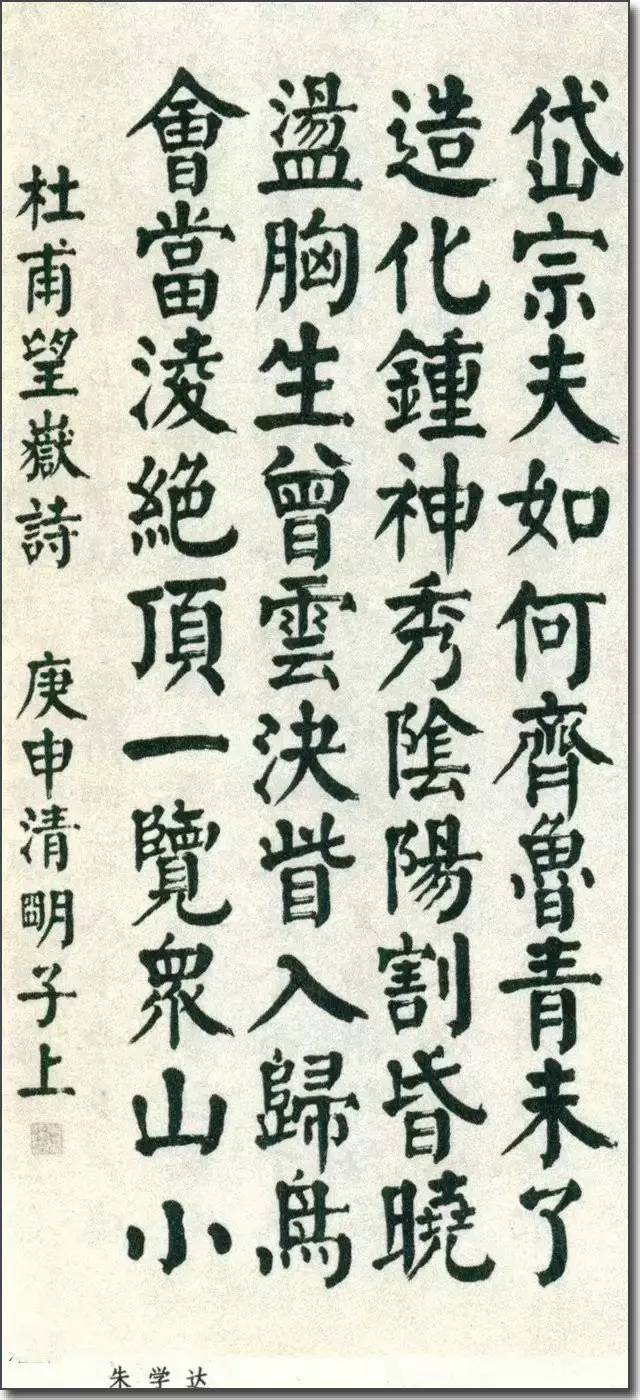 岱宗夫如何齊魯青未了
造化鍾神秀陰陽割昏曉
盪胸生曾雲決眥入歸鳥
會當淩絕頂一覽眾山小
杜甫望嶽詩　庚申清明子上
朱学达